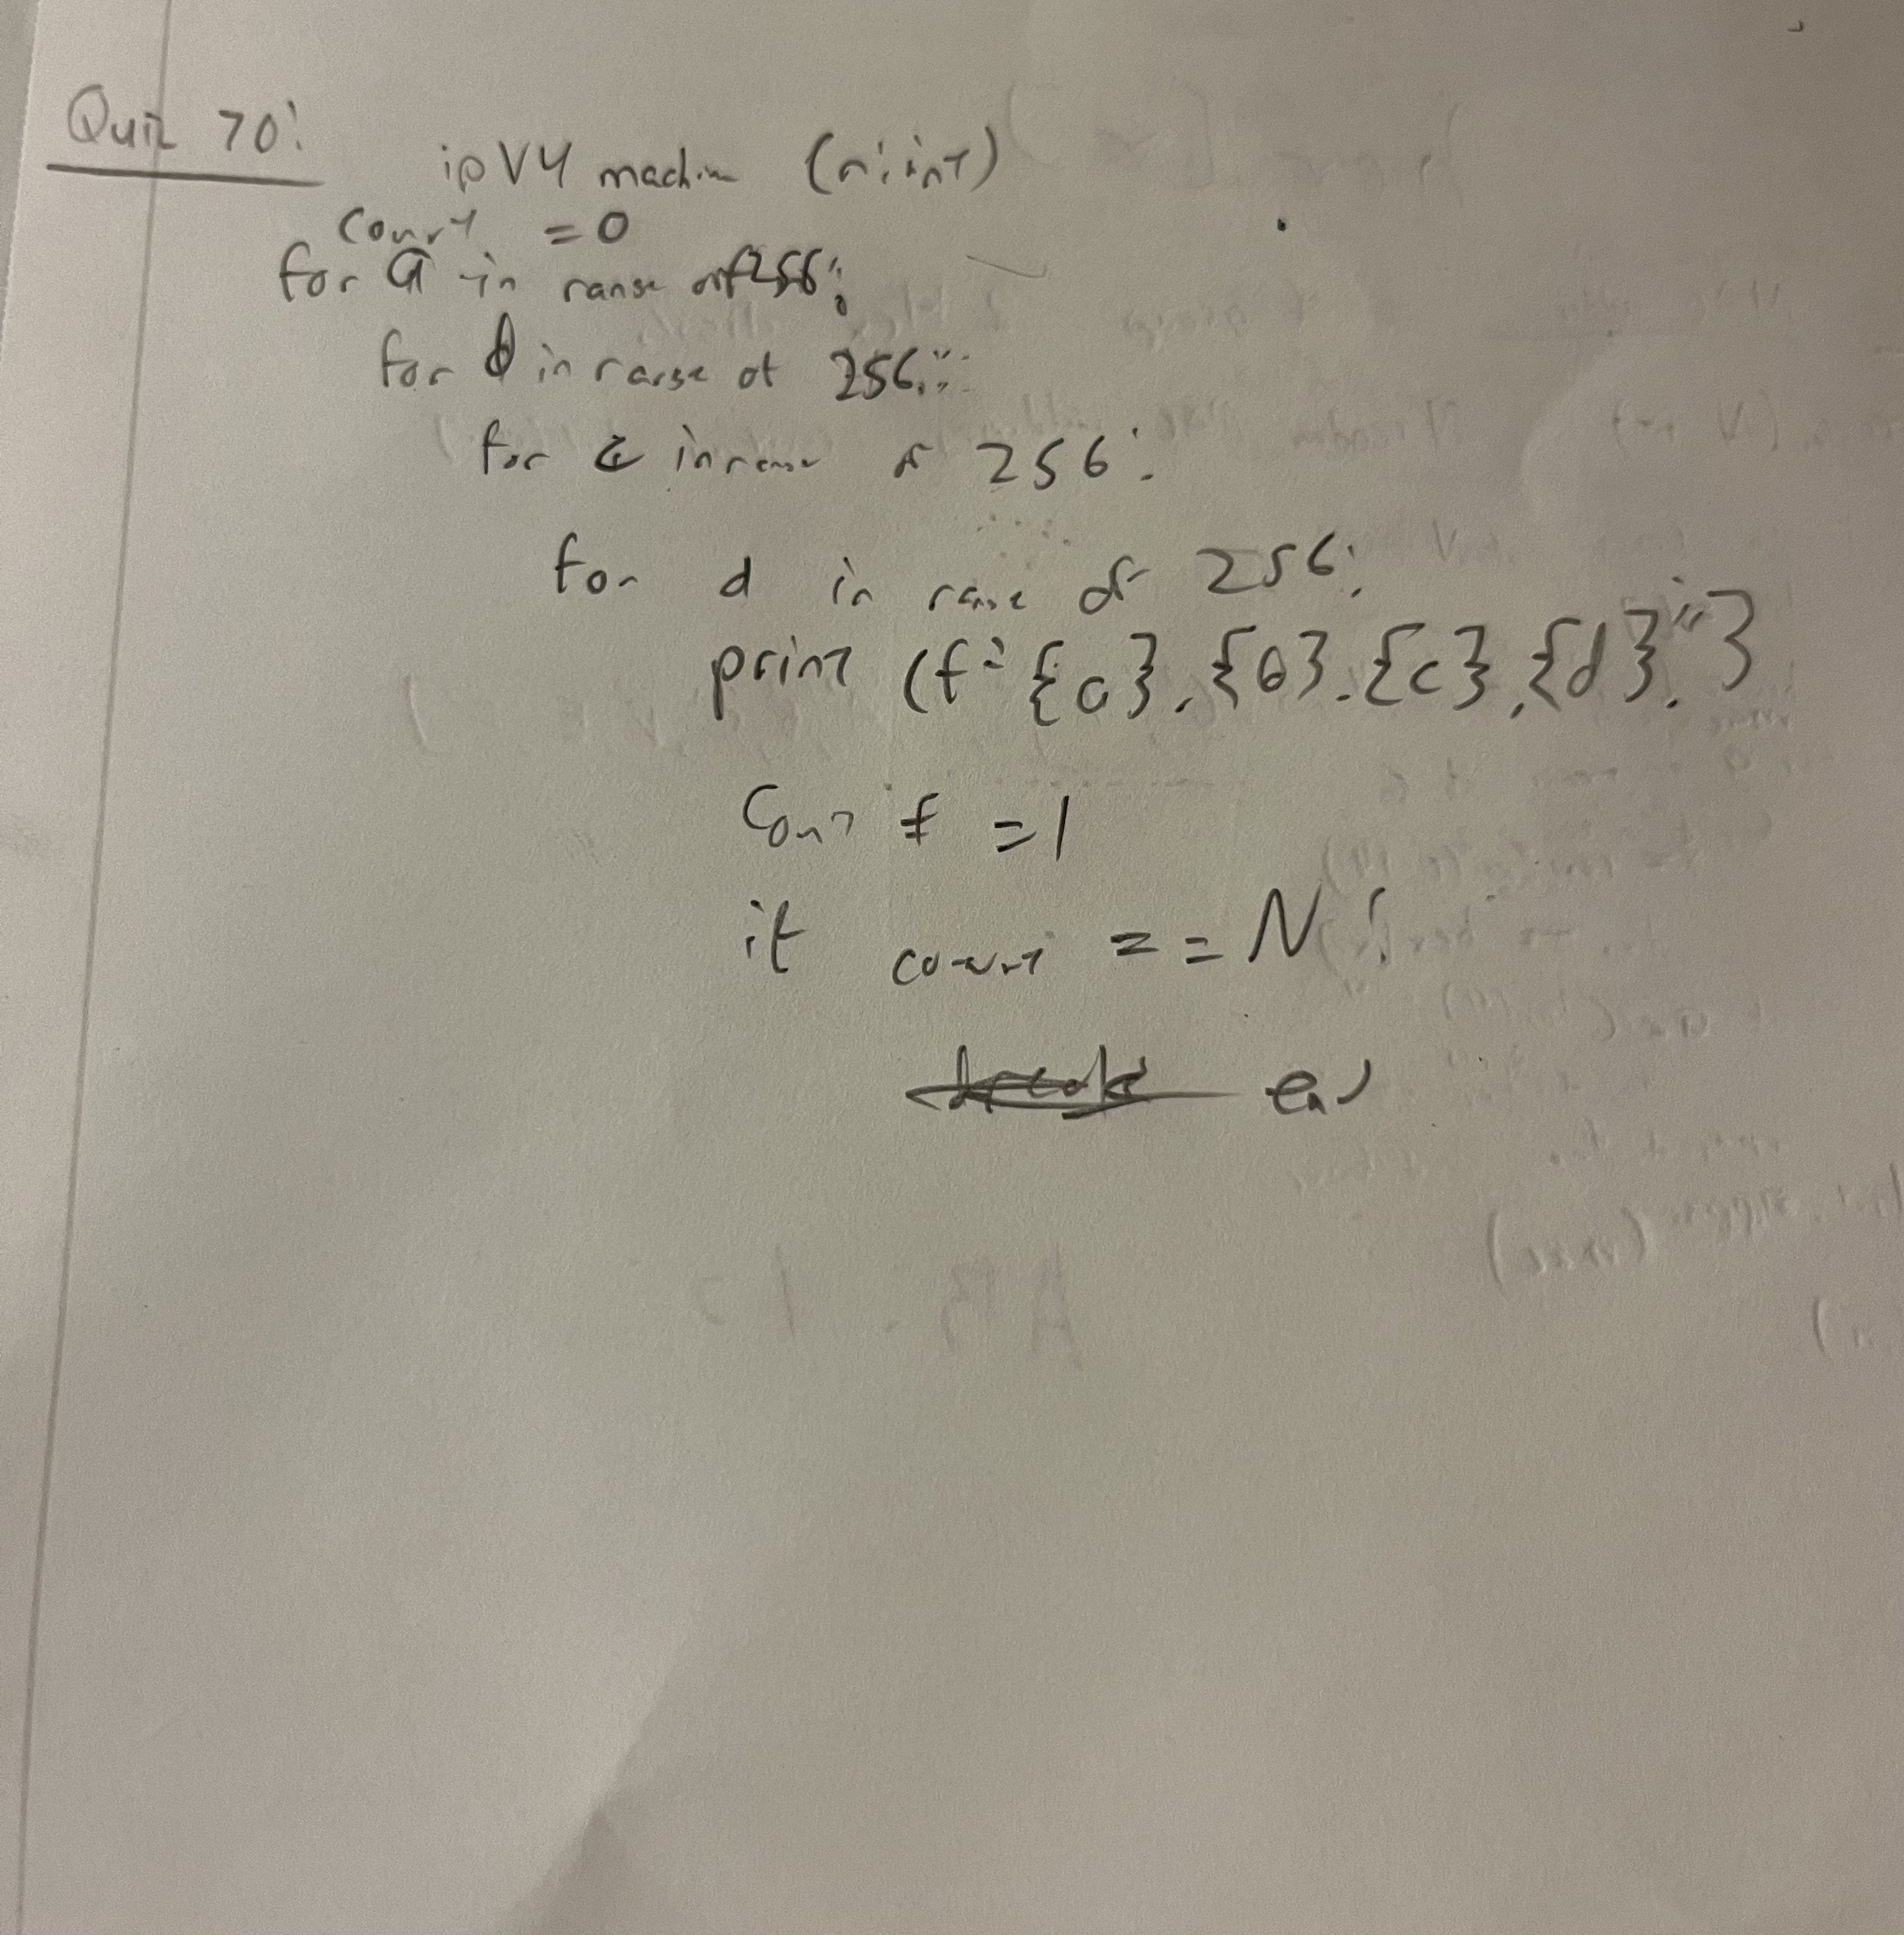 Quiz 70:
ipV4 machine (n: int)
Count = 0
for a in range of 256:
for b in range of 256:
for c in range of 256:
for d in range of 256:
print (f"{a}.{b}.{c}.{d}."}
Count += 1
if count == N: